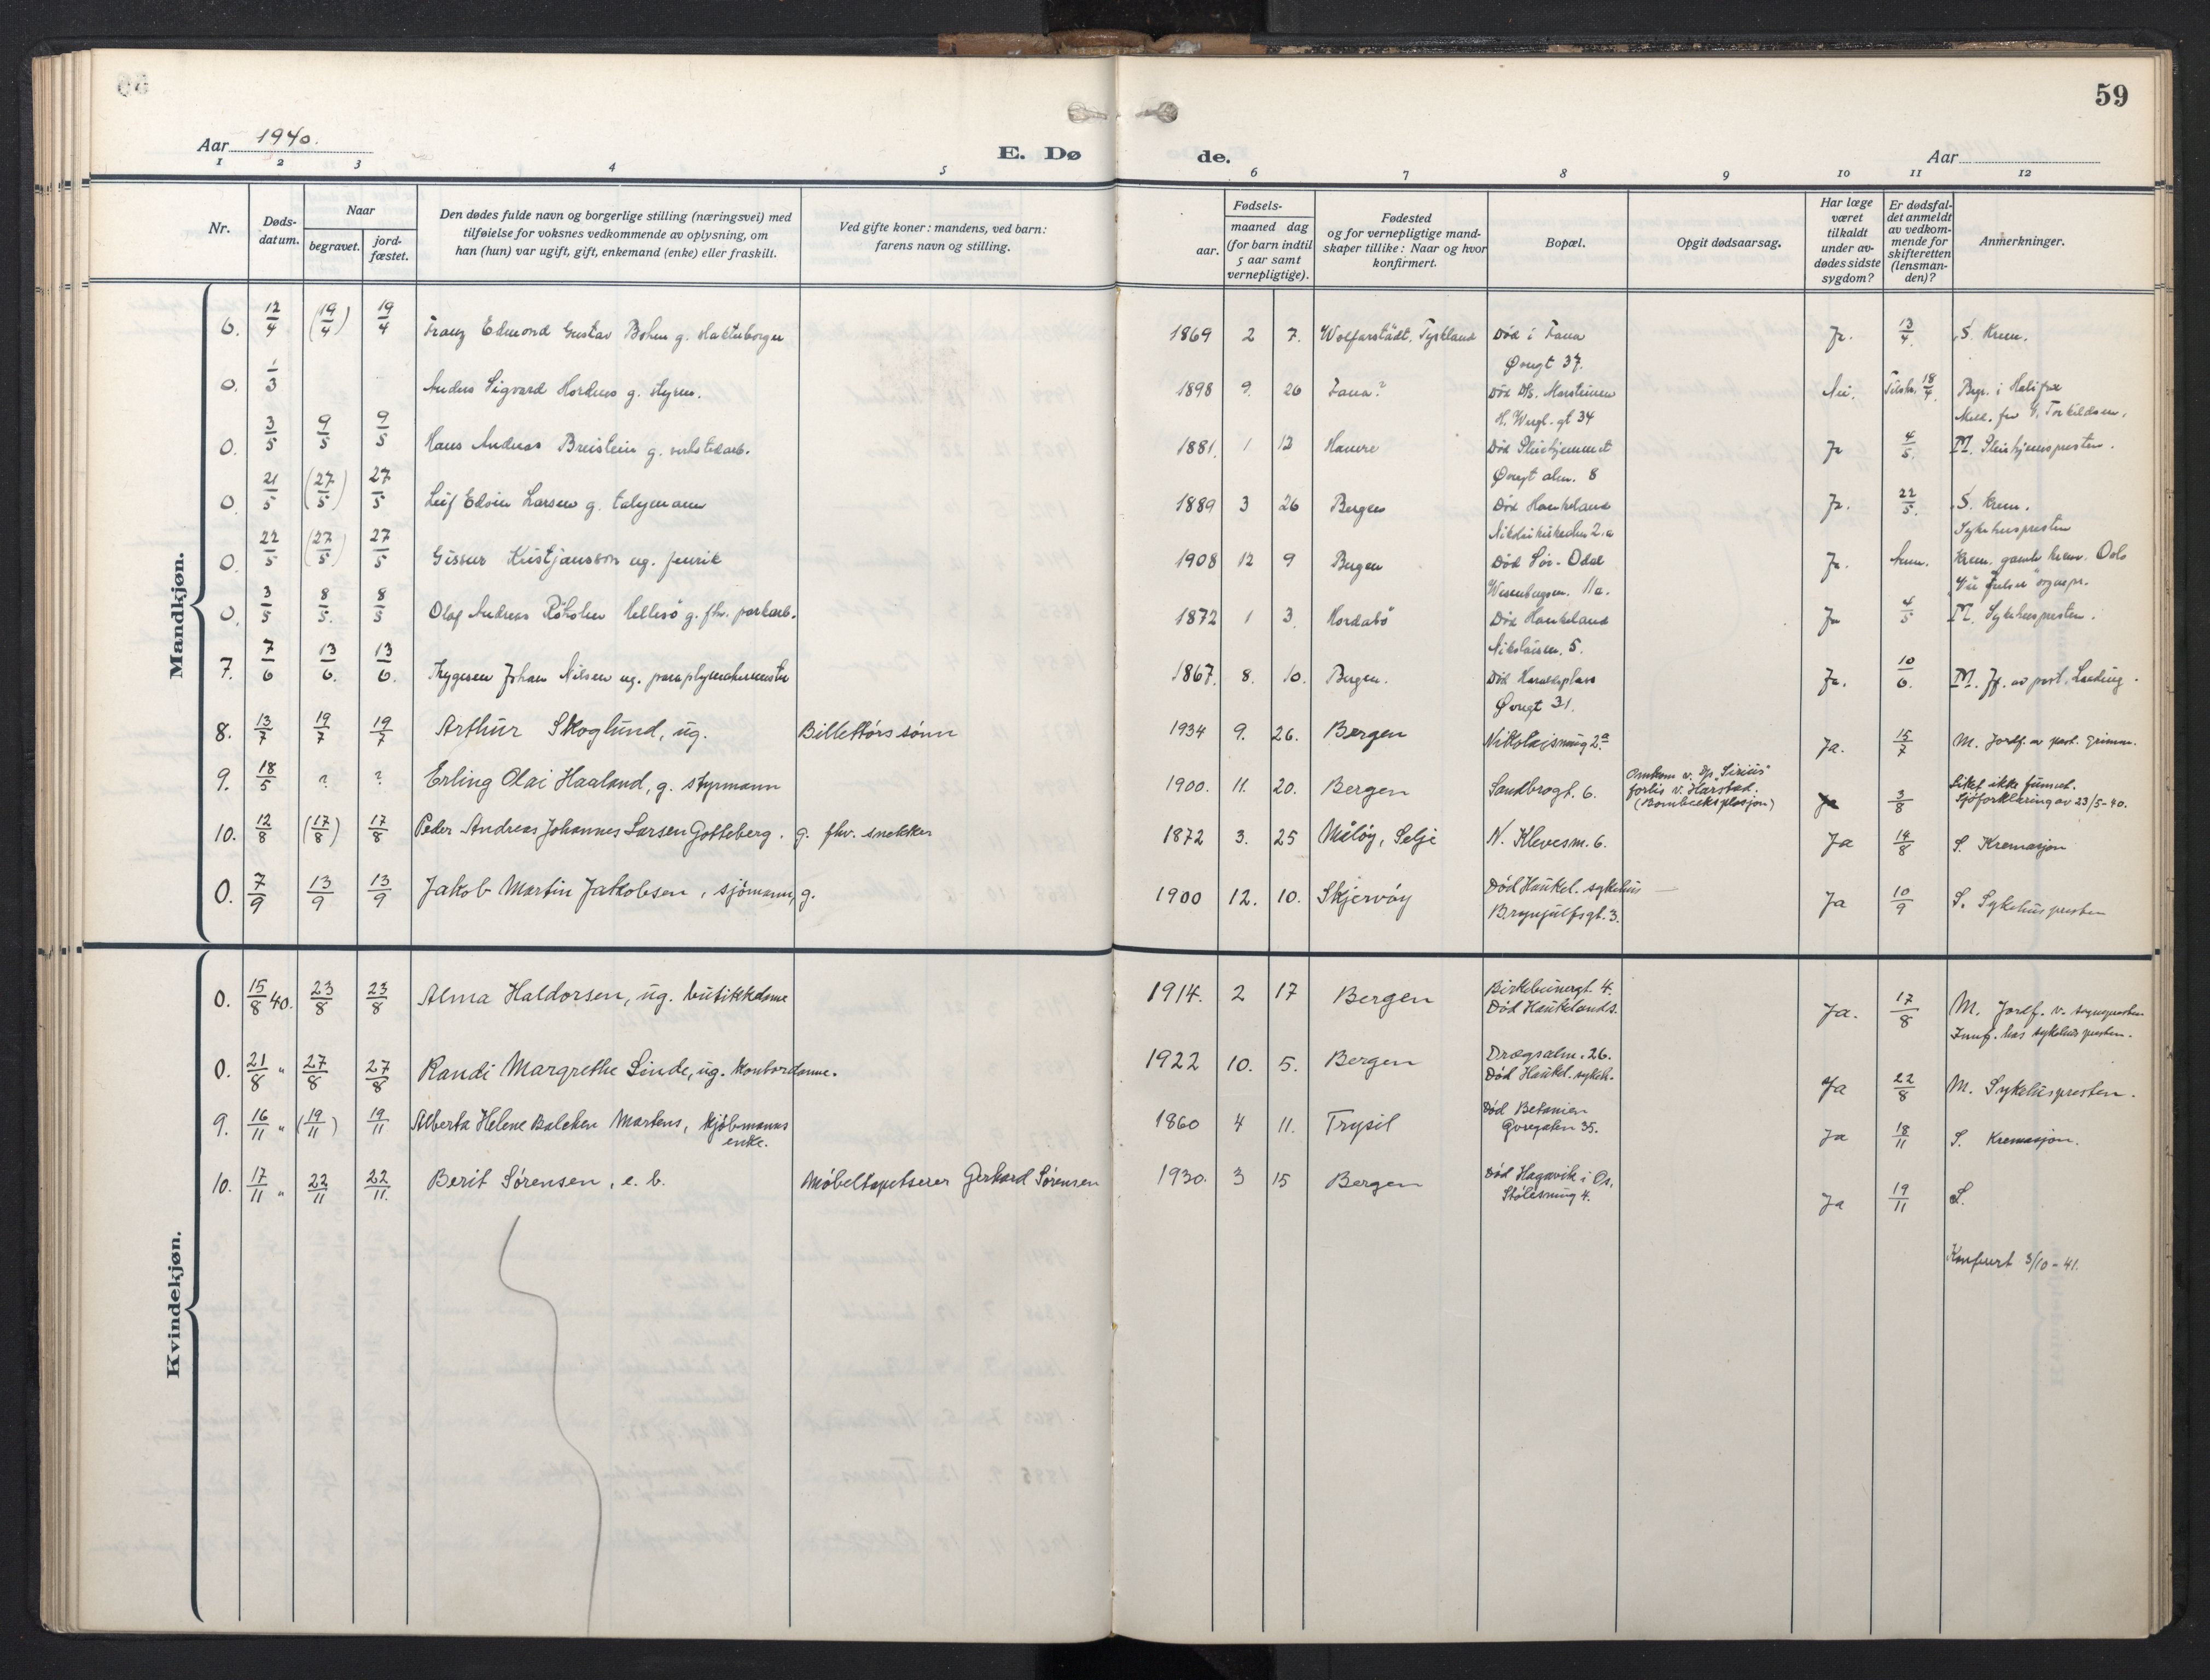 59
Aar 1940.
E. Dø
de.
Aar
1 2 3 4 5 6 7 8 9 10 11 12
Nr.
Døds-
datum.
Naar
begravet.
jord-
fæstet.
Den dødes fulde navn og borgerlige stilling (næringsvei) med
tilføielse for voksnes vedkommende av oplysning, om
han (hun) var ugift, gift, enkemand (enke) eller fraskilt.
Ved gifte koner: mandens, ved barn:
farens navn og stilling.
Fødsels-
aar.
maaned dag
(for barn indtil
5 aar samt
vernepligtige).
Fødested
og for vernepligtige mand-
skaper tillike: Naar og hvor
konfirmert.
Bopæl.
Opgit dødsaarsag.
Har læge
været
tilkaldt
under av-
dødes sidste
sygdom?
Er dødsfal-
det anmeldt
av vedkom-
mende for
skifteretten
(lensman-
den)?
Anmerkninger.
Mandkjøn.
6. 12/4 (19/4) 19/4 Franz Edmond Gustav Bohm g. 1869 2 7. Tyskland Død i Fana Ja. 13/4 S. Krem.
Øvregt 37.
0. 1/3 Anders Sigvard Hordnes g. styrm. 1898 9. 26 Fana? Død D/S. Marsteinen Nei. 18/4 Begr. i Halifax
H. Wergl. gt 34
0. 3/5 9/5 9/5 Hans Andreas Breistein g. verkstedarb. 1881 1 12 Død Pleiehjemmet Ja 4/5 M. Pleiehjemspresten.
Øvregt alm. 8
0. 21/5 (27/5) 27/5 Leif Edvin Larsen g. talymann 1889 3 26 Bergen Død Haukeland Ja. 22/5 S. Krem.
Sykehuspresten
0. 22/5 (27/5) 27/5 Gissur Kristjansson ug. fenrik 1908 12 9 Bergen Død Sør-Odal Ja. Anm. Krem. gamle krem. Oslo
Wesenbergsm. 11a.
0. 3/5 8/5. 8/5 Olaf Andreas Røholm Hellesø g. fhv. parkarb. 1872 1 3 Hordabø Død Haukeland Ja 4/5 M. Sykehuspresten.
Nikolaism. 5.
7. 7/6 13/6. 13/6. Johan Nilsen ug. paraplymakermester 1867. 8. 10. Bergen. Død Haraldsplass Ja. 10/6. M. Jf. av past. Lading.
Øvregt 31.
8. 13/7 19/7 19/7 Arthur Skoglund, ug. Billettørs sønn 1934 9. 26. Bergen Nikolaismug 2a. Ja. 15/7 M. Jordf. av past. Grimm.
9. 18/5 ? ? Erling Olai Haaland, g. styrmann 1900. 11. 20. Bergen Sandbrogt. 6. Omkom v. D/s. "Sirius"
forlis v. Harstad.
(Bombeeksplosjon) 3/8 Liket ikke funnet.
Sjøforklaring av 23/5-40.
10. 12/8 (17/8) 17/8 Peder Andreas Johannes Larsen Gotteberg. g. fhv. snekker 1872 3. 25 Måløy, Selje N. Klevesm. 6. Ja 14/8 S. Kremasjon
0. 7/9 13/9 13/9 Jakob Martin Jakobsen, sjømann, g. 1900 12. 10. Skjervøy Død Haukel. sykehus
Brynjulfsgt. 3. Ja 10/9 S. Sykehuspresten
Kvindekjøn.
0. 15/8 40. 23/8 23/8 Alma Haldorsen, ug. butikkdame 1914. 2 17 Bergen Birkebeinergt. 4.
Død Haukelands. Ja. 17/8 M. Jordf. v. sognepresten
Innf. hos sykehuspresten.
0. 21/8 " 27/8 27/8 Randi Margrethe Linde, ug. kontordame. 1922 10. 5. Bergen Dragsalm. 26.
Død Haukel. sykeh. Ja 22/8 M. Sykehuspresten.
9. 16/11 " (19/11) 19/11 Alberta Helene Balchen Martens, kjøbmanns
enke. 1860 4 11. Trysil Død Betanien
Øvregaten 35. Ja 18/11 S. Kremasjon.
10. 17/11 " 22/11 22/11. Berit Sørensen, e. b. Møbeltapetserer Gerhard Sørensen 1930. 3 15 Bergen Død Hagavik i Os.
Stølesmug 4. Ja 19/11 S.
Konferert 3/10-41.